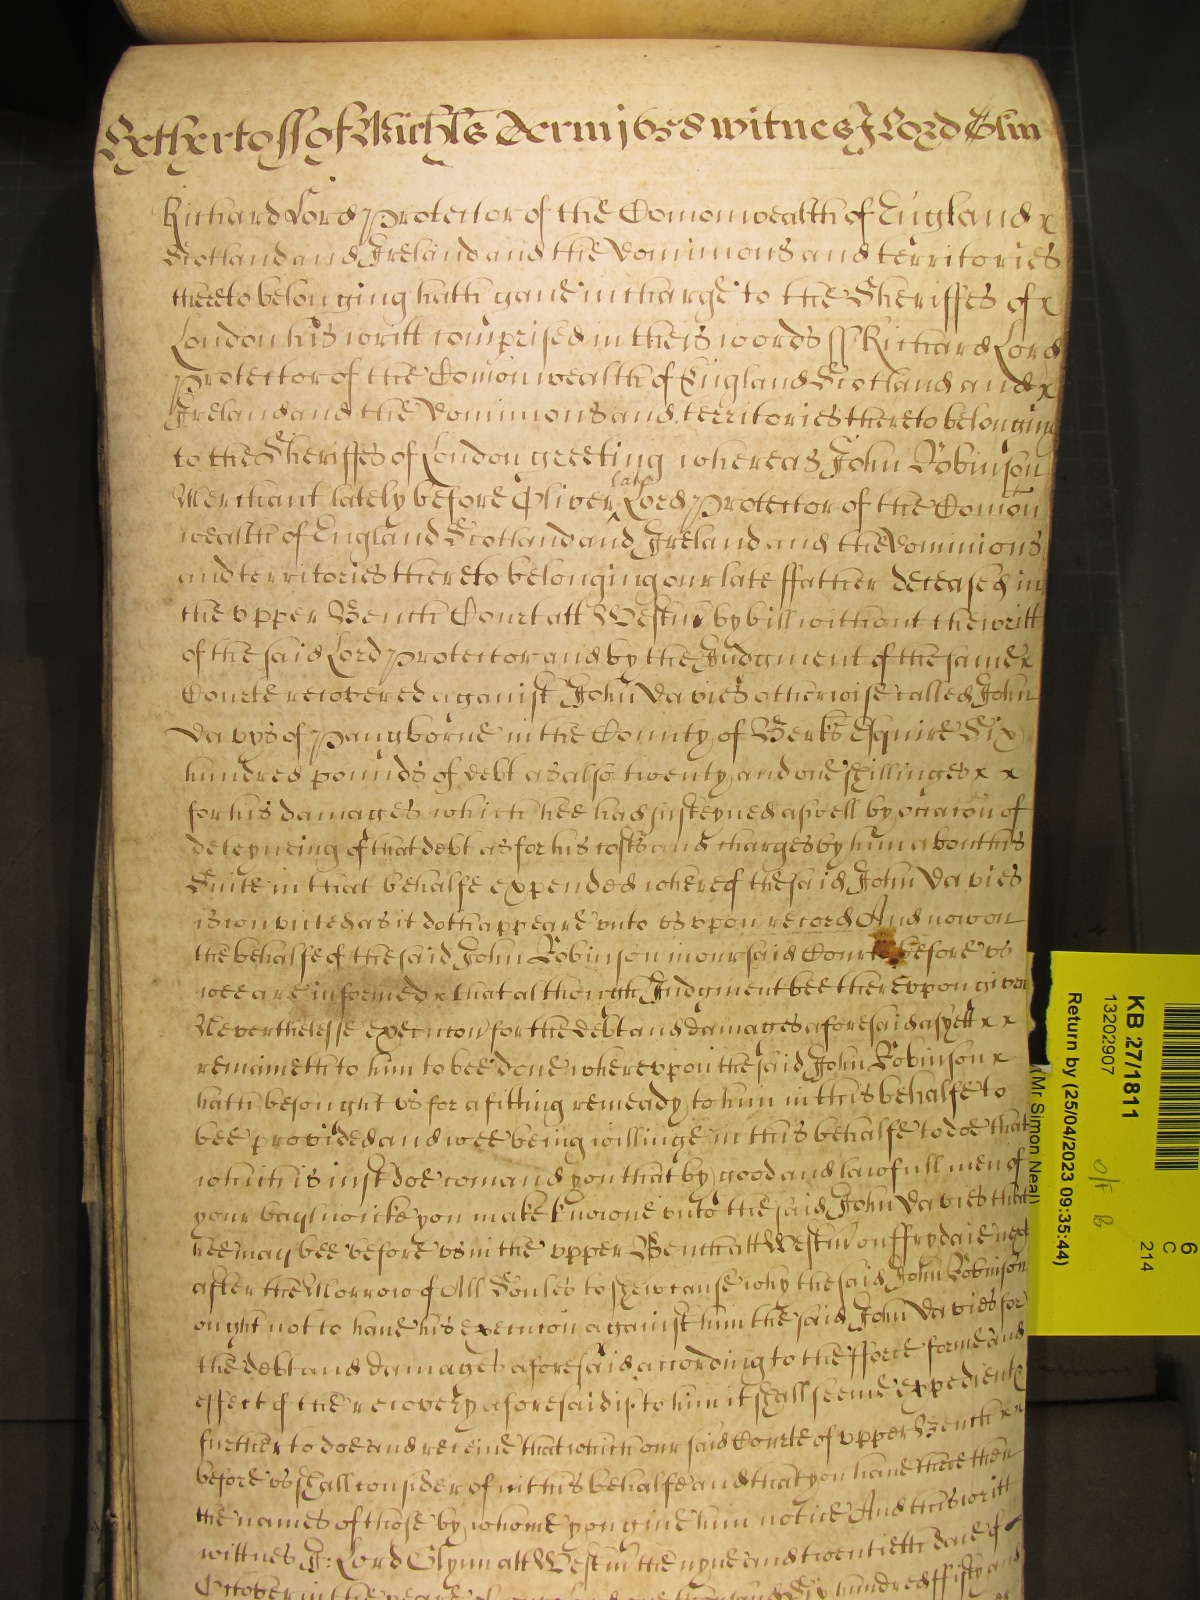 Yet hertoss of Mich'is Terme 1658 witnes J Lord Glin
Richard Lord Protector of the Comonwealth of England x
Scotland and Ireland and the Dominions and territories
thereto belonging hath gave in charge to the Sheriffes of x
London his writt comprised in theis words ss Richard Lord
Protector of the Comonwealth of England Scotland and x
Ireland and the Dominions and territories thereto belonging
to the Sheriffes of London greeting whereas John Robinson
Merchant lately before Oliver late Lord Protector of the Comon
wealth of England Scotland and Ireland and the Dominions
and territories thereto belonging our late ffather deceased in
the vpper Bench Court att Westm' by bill without the writt
of the said Lord Protector and by the Judgment of the same x
Courte recovered against John Davies otherwise called John
Davys of Pangborne in the County of Berks Esquire Six
hundred pounds of debt as also twenty and one shillinges x x
for his damages which hee had susteyned aswell by occacion of
deteyneing of that debt as for his costs and charges by him about his
Suite in that behalfe expended whereof the said John Davies
is convicted as it doth appeare vnto vs vpon record And now on
the behalfe of the said John Robinson in our said Courte before vs
wee are informed x that although Judgment bee therevpon given
Neverthelesse execucon for the debt and damages aforesaid as yett x x
remaineth to him to bee done wherevpon the said John Robinson x
hath besought vs for a fitting remeady to him in this behalfe to
bee provided and wee being willinge in this behalfe to doe that
which is iust doe comand you that by good and lawfull men of
your bayliwicke you make knowne vnto the said John Davies that
hee may bee before vs in the vpper Bench att Westm' on ffrydaie next
after the Morrow of All Soules to shew cause why the said John Robinson
ought not to have his execucon against him the said John Davies for
the debt and damages aforesaid according to the fforce forme and
effect of the recovery aforesaid if to him it shall seeme expedient
further to doe and receive that which our said Courte of vpper Bench x x
before vs shall consider of in this behalfe and that you have there then
the names of those by whome you give him notice And this writt
wittnes J: Lord Glynn att Westm' the nyne and twentieth daie of
October in the yeare of six hundred ffifty and
6
C
214
KB 27/1811
13202907
Return by (25/04/2023 09:35:44)
(Mr Simon Neal)
O/F B